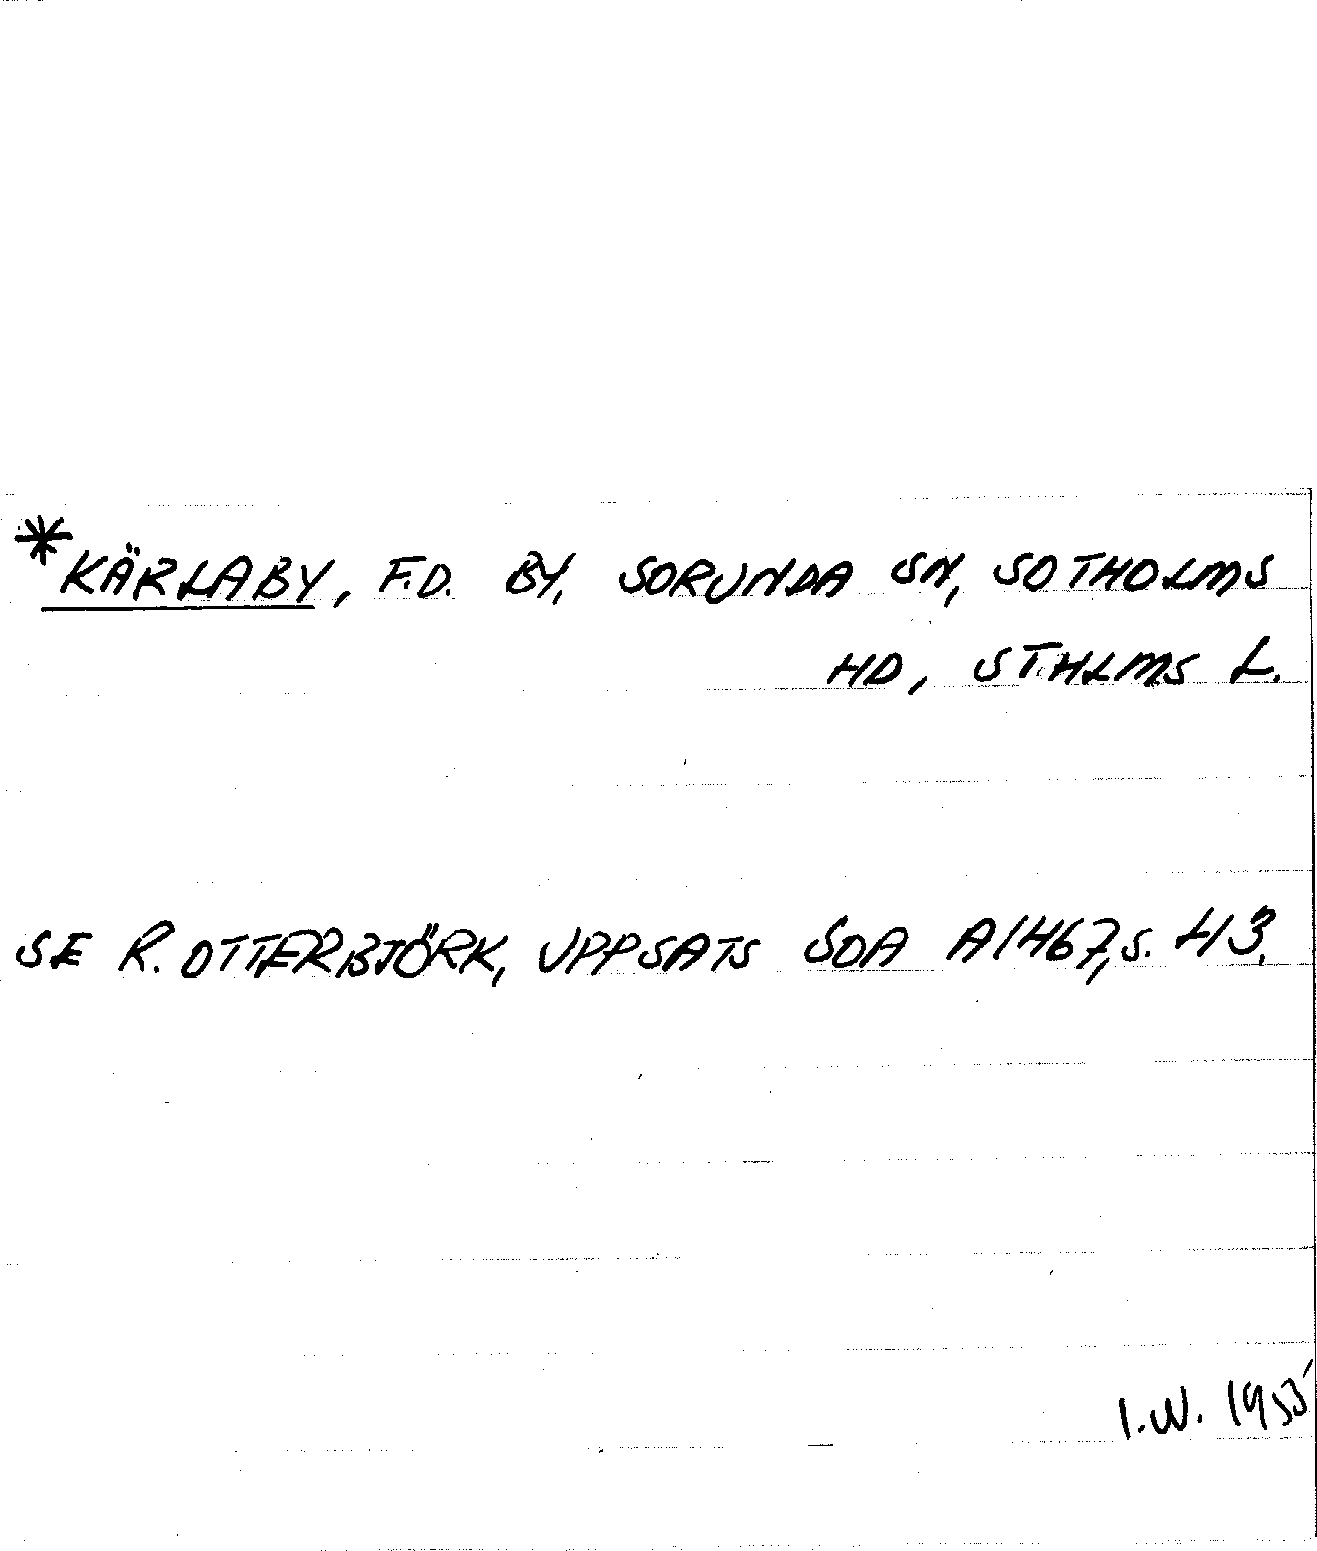 *KÄRLABY, F.D. BY, SORUNDA SN, SOTHOLMS
HD, STHLMS L.
SE R. OTTERBJÖRK, UPPSATS SOA A1467, S. 43.
I.W.